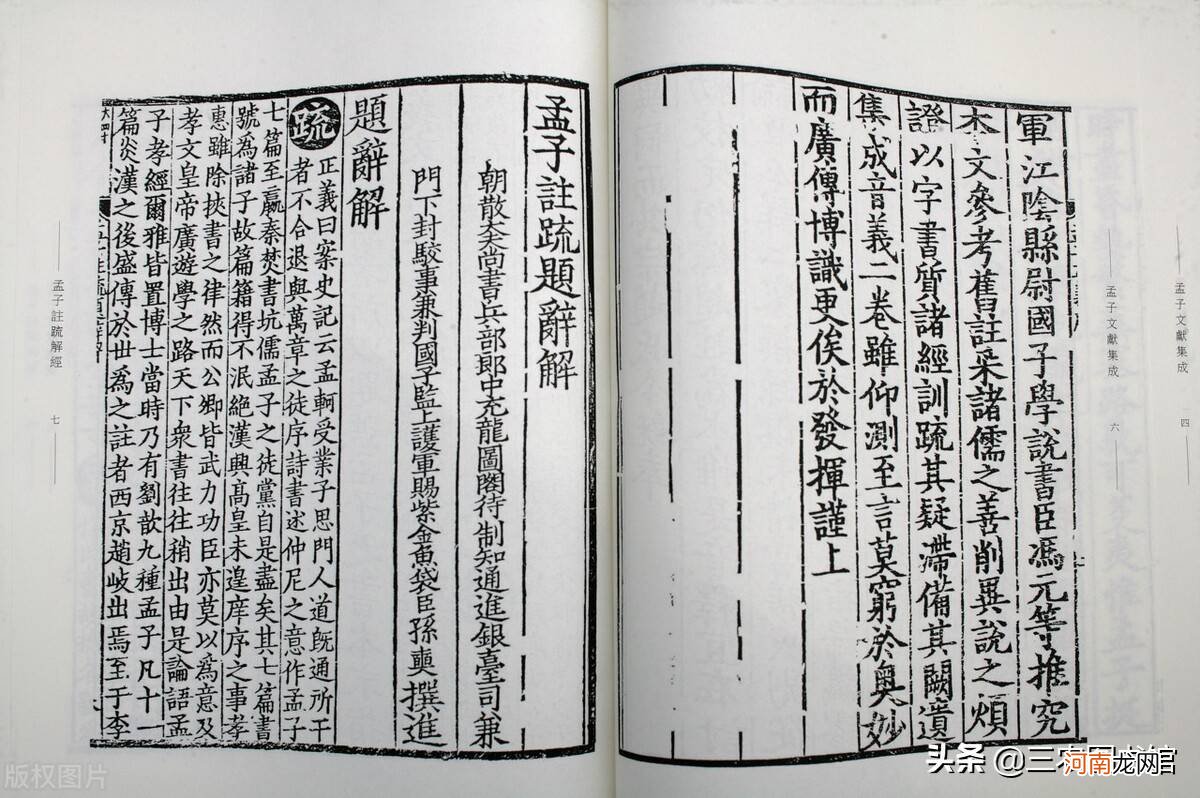 孟子文獻集成
四
孟子文獻集成
六
軍江陰縣尉國子學說書臣馮元等推究
本文參考舊註采諸儒之善削異說之煩
證以字書質諸經訓疏其疑滯備其闕遺
集成音義二卷雖仰測至言莫窮於奧妙
而廣傳博識更俟於發揮謹上
孟子註疏題辭解
朝散大夫尚書兵部郎中充龍圖閣待制知通進銀臺司兼
門下封駁事兼判國子監上護軍賜紫金魚袋臣孫奭撰進
題辭解
疏
正義曰案史記云孟軻受業子思門人道旣通所干
者不合退與萬章之徒序詩書述仲尼之意作孟子
七篇至嬴秦焚書坑儒孟子之徒黨自是盡矣其七篇書
號爲諸子故篇籍得不泯絕漢興高皇未遑庠序之事孝
惠雖除挾書之律然而公卿皆武力功臣亦莫以爲意及
孝文皇帝廣遊學之路天下衆書往往稍出由是論語孟
子孝經爾雅皆置博士當時乃有劉歆九種孟子凡十一
篇炎漢之後盛傳於世爲之註者西京趙岐出焉至于李
孟子註疏解經
七
版权图片
头条 @三农
河南龙网